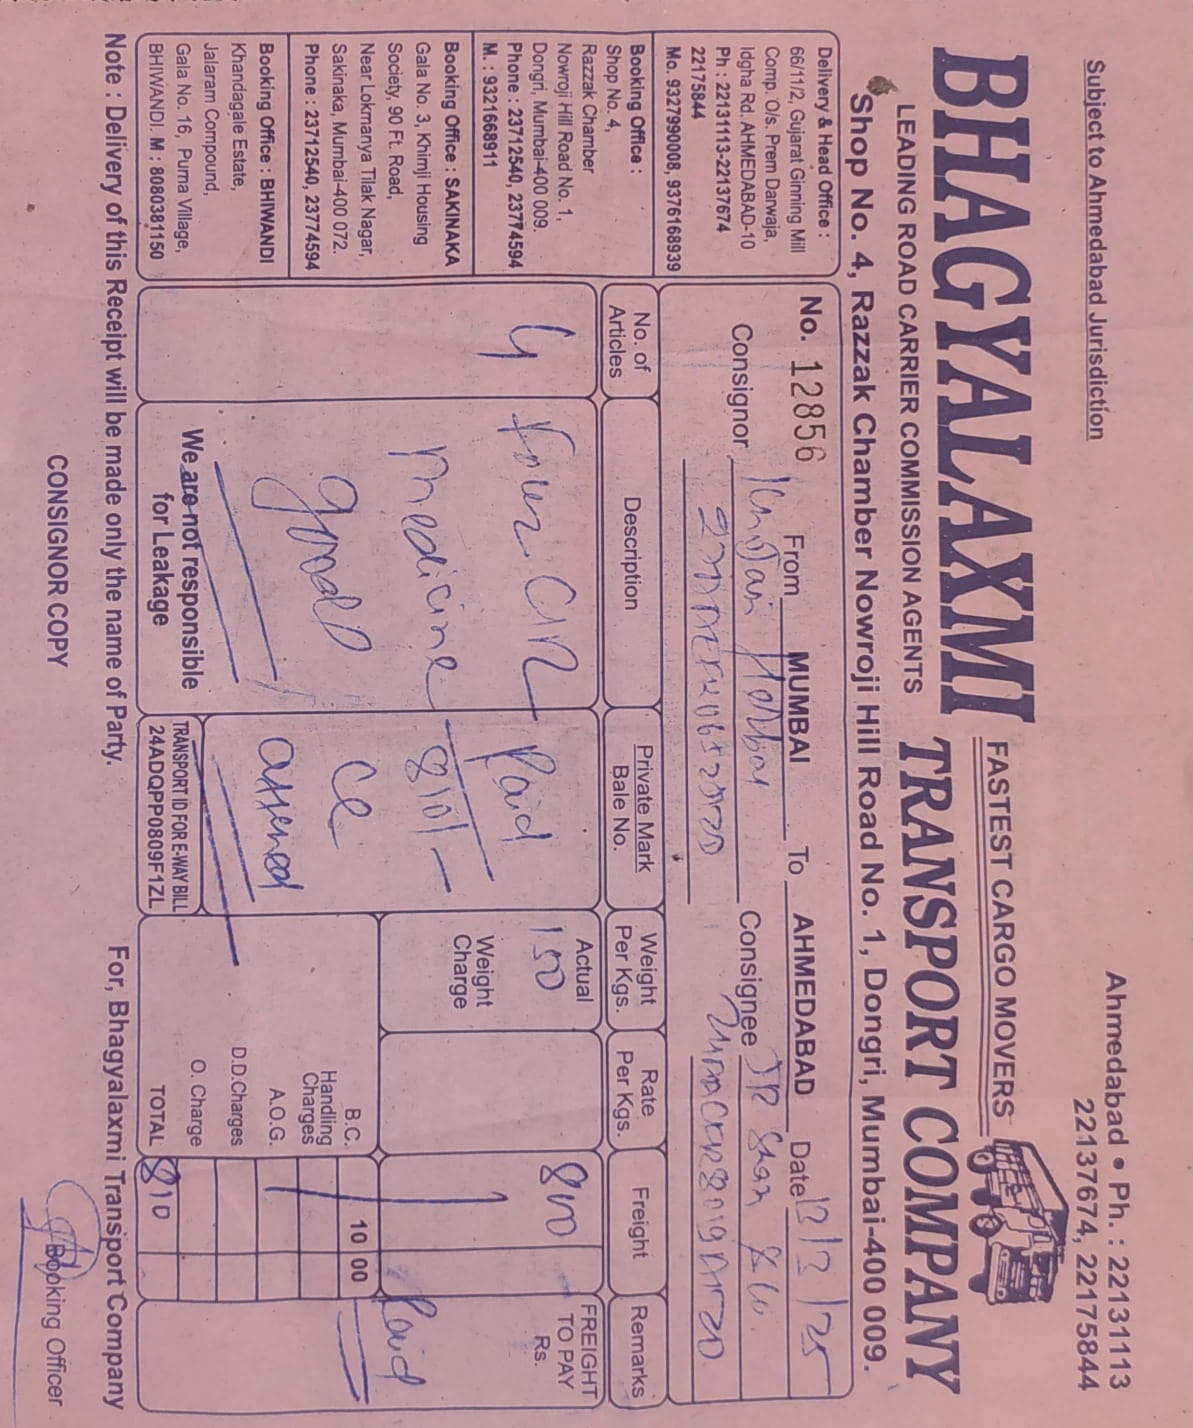 Subject to Ahmedabad Jurisdiction
Ahmedabad • Ph. : 22131113
22137674, 22175844
BHAGYALAXMI TRANSPORT COMPANY
FASTEST CARGO MOVERS
LEADING ROAD CARRIER COMMISSION AGENTS
Shop No. 4, Razzak Chamber Nowroji Hill Road No. 1, Dongri, Mumbai-400 009.
Delivery & Head Office :
66/11/2, Gujarat Ginning Mill
Comp. O/s. Prem Darwaja,
Idgha Rd. AHMEDABAD-10
Ph : 22131113-22137674
22175844
Mo. 9327990008, 9376168939
Booking Office :
Shop No. 4,
Razzak Chamber
Nowroji Hill Road No. 1,
Dongri, Mumbai-400 009.
Phone : 23712540, 23774594
M. : 9321668911
Booking Office : SAKINAKA
Gala No. 3, Khimji Housing
Society, 90 Ft. Road,
Near Lokmanya Tilak Nagar,
Sakinaka, Mumbai-400 072.
Phone : 23712540, 23774594
Booking Office : BHIWANDI
Khandagale Estate,
Jalaram Compound,
Gala No. 16, Purna Village,
BHIWANDI. M : 8080381150
No. 12856 From MUMBAI To AHMEDABAD Date 13/3/25
Consignor Consignee JR Shah & Co.
No. of Articles
Description
Private Mark Bale No.
Weight Per Kgs.
Rate Per Kgs.
Freight
Remarks
4
Four
Paid
Actual
150
800
FREIGHT TO PAY Rs.
medicine
810/-
Weight Charge
Paid
good
B.C. 10 00
Handling Charges
A.O.G.
D.D.Charges
O. Charge
TOTAL 810
We are not responsible for Leakage
TRANSPORT ID FOR E-WAY BILL
24ADQPP0809F1ZL
Note : Delivery of this Receipt will be made only the name of Party.
For, Bhagyalaxmi Transport Company
CONSIGNOR COPY
Booking Officer